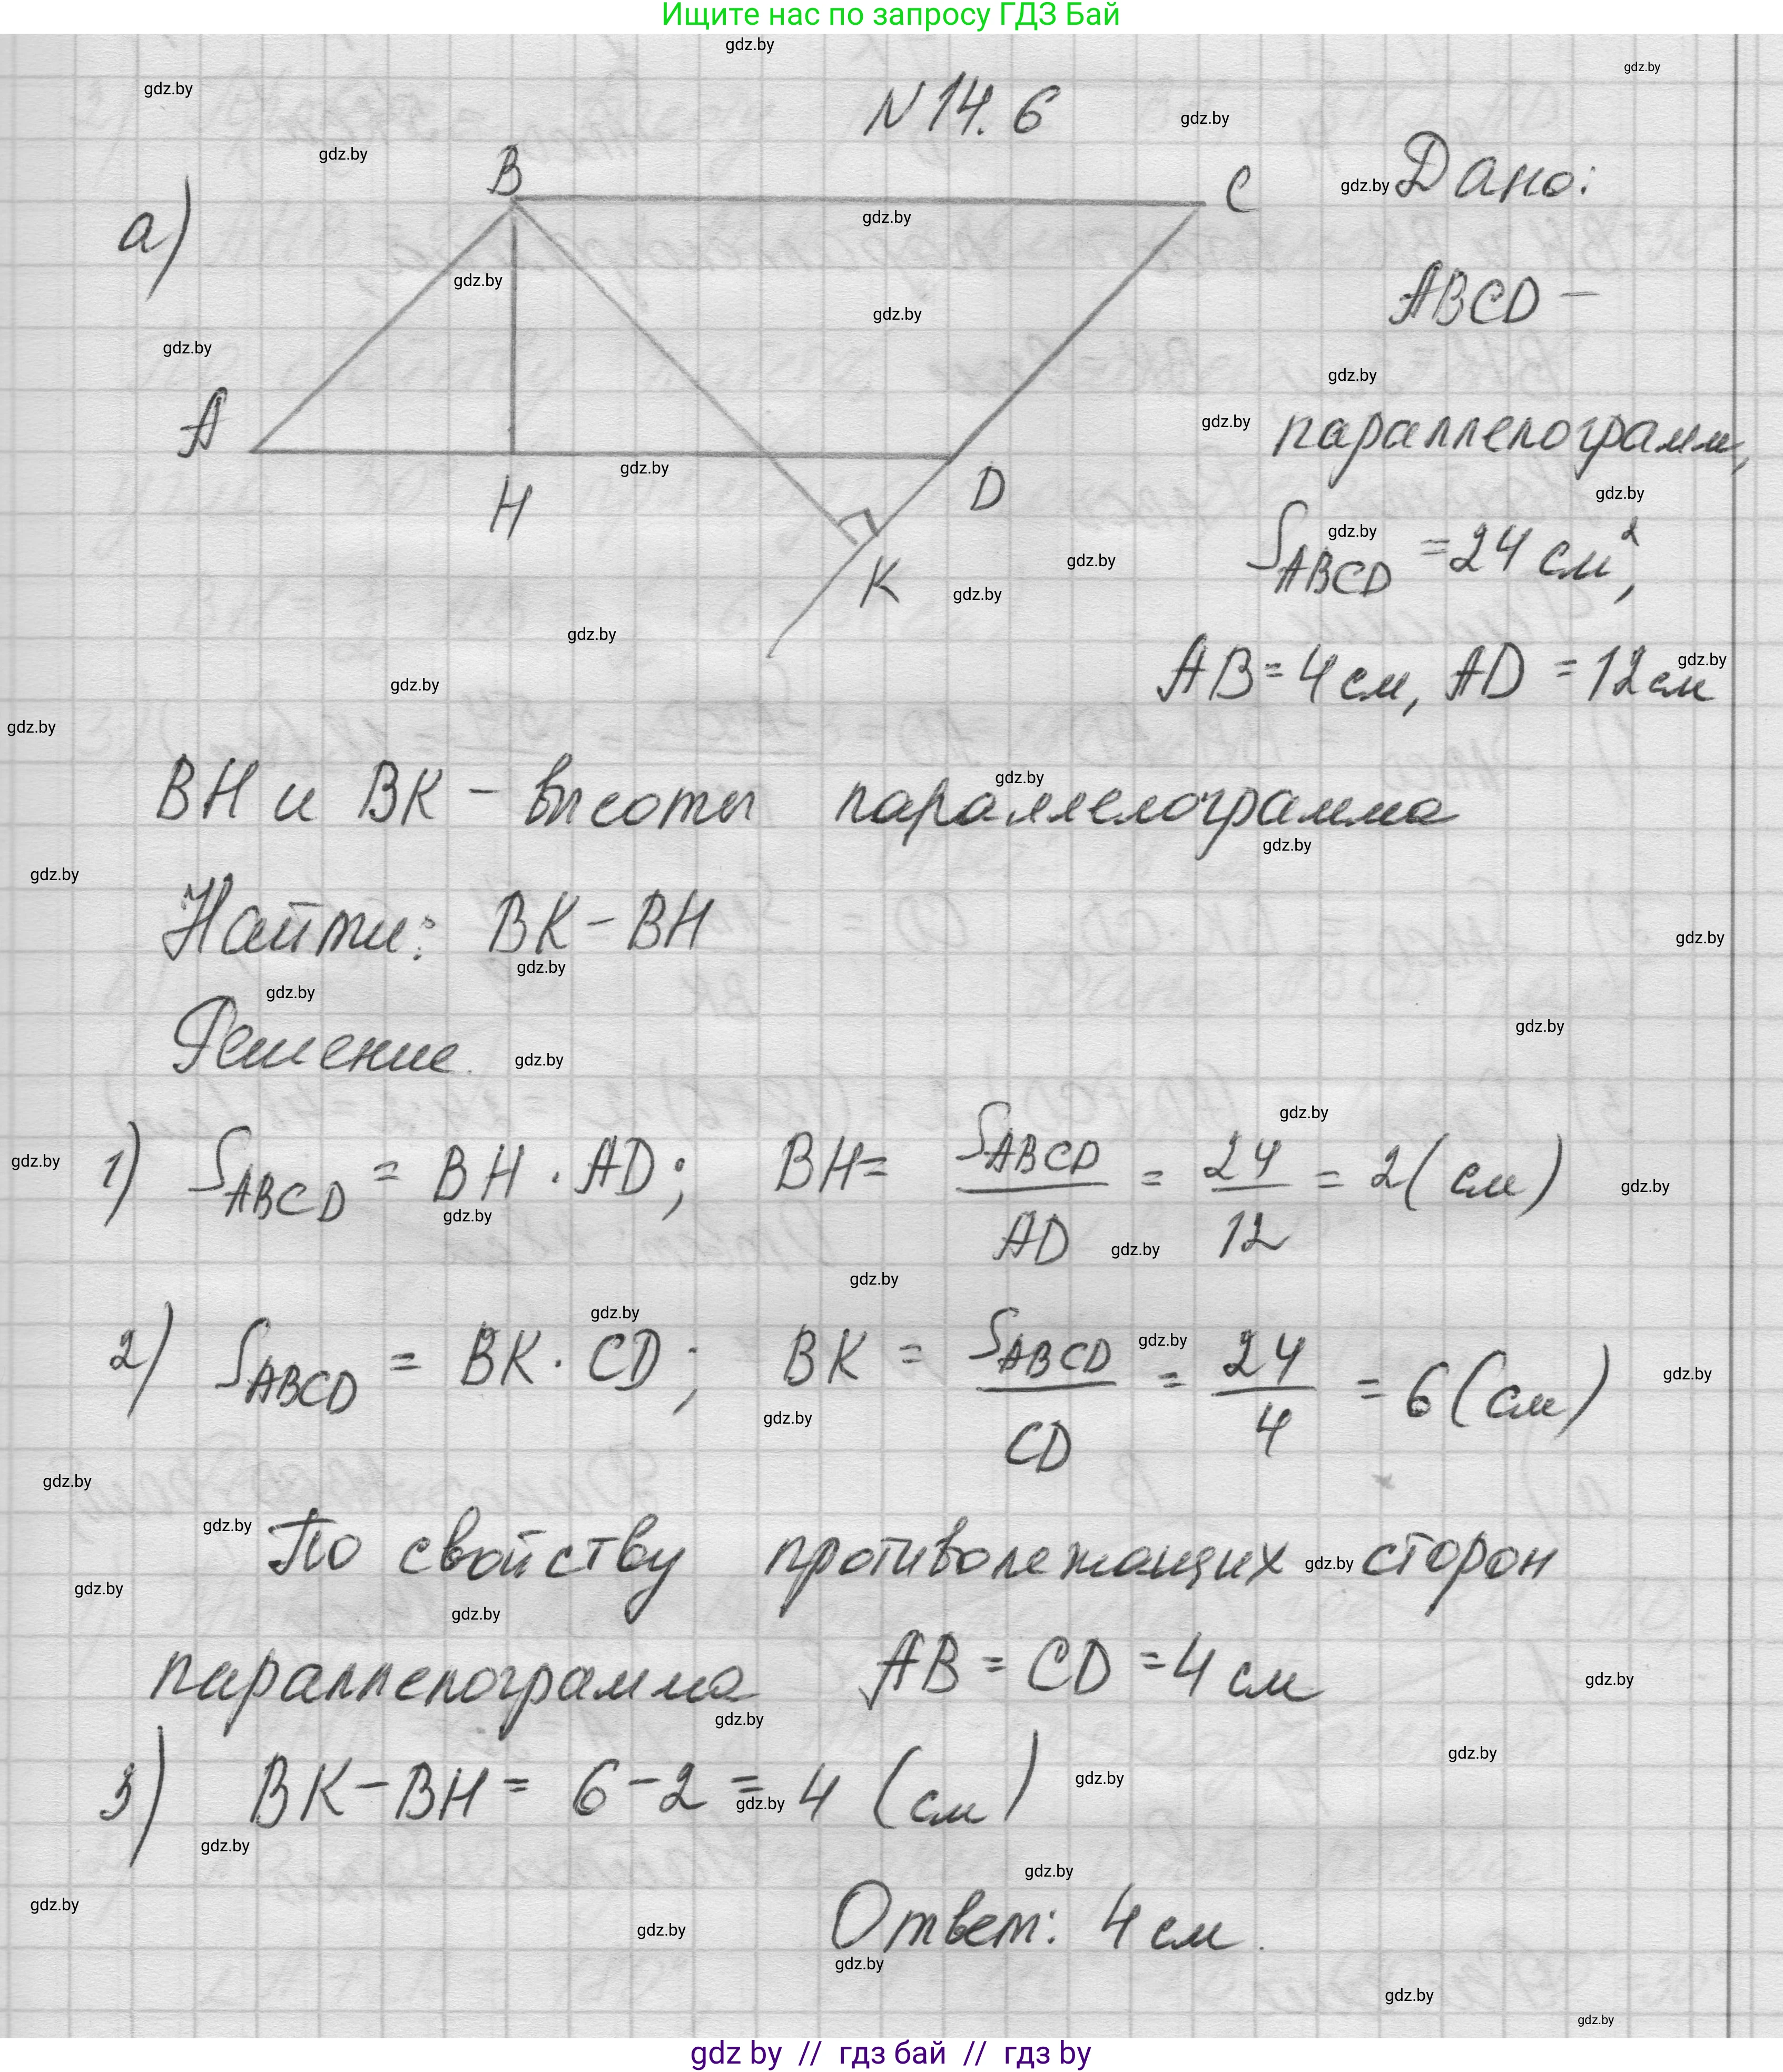 Ищите нас по запросу ГДЗ Бай
N 14.6
а)
B
C
A
H
D
K
Дано:
ABCD –
параллелограмм,
S_ABCD = 24 см²,
AB = 4 см, AD = 12 см
BH и BK – высоты параллелограмма
Найти: BK – BH
Решение.
1) S_ABCD = BH · AD; BH = S_ABCD / AD = 24 / 12 = 2 (см)
2) S_ABCD = BK · CD; BK = S_ABCD / CD = 24 / 4 = 6 (см)
По свойству противолежащих сторон
параллелограмма AB = CD = 4 см
3) BK – BH = 6 – 2 = 4 (см)
Ответ: 4 см.
gdz by // гдз бай // гдз by